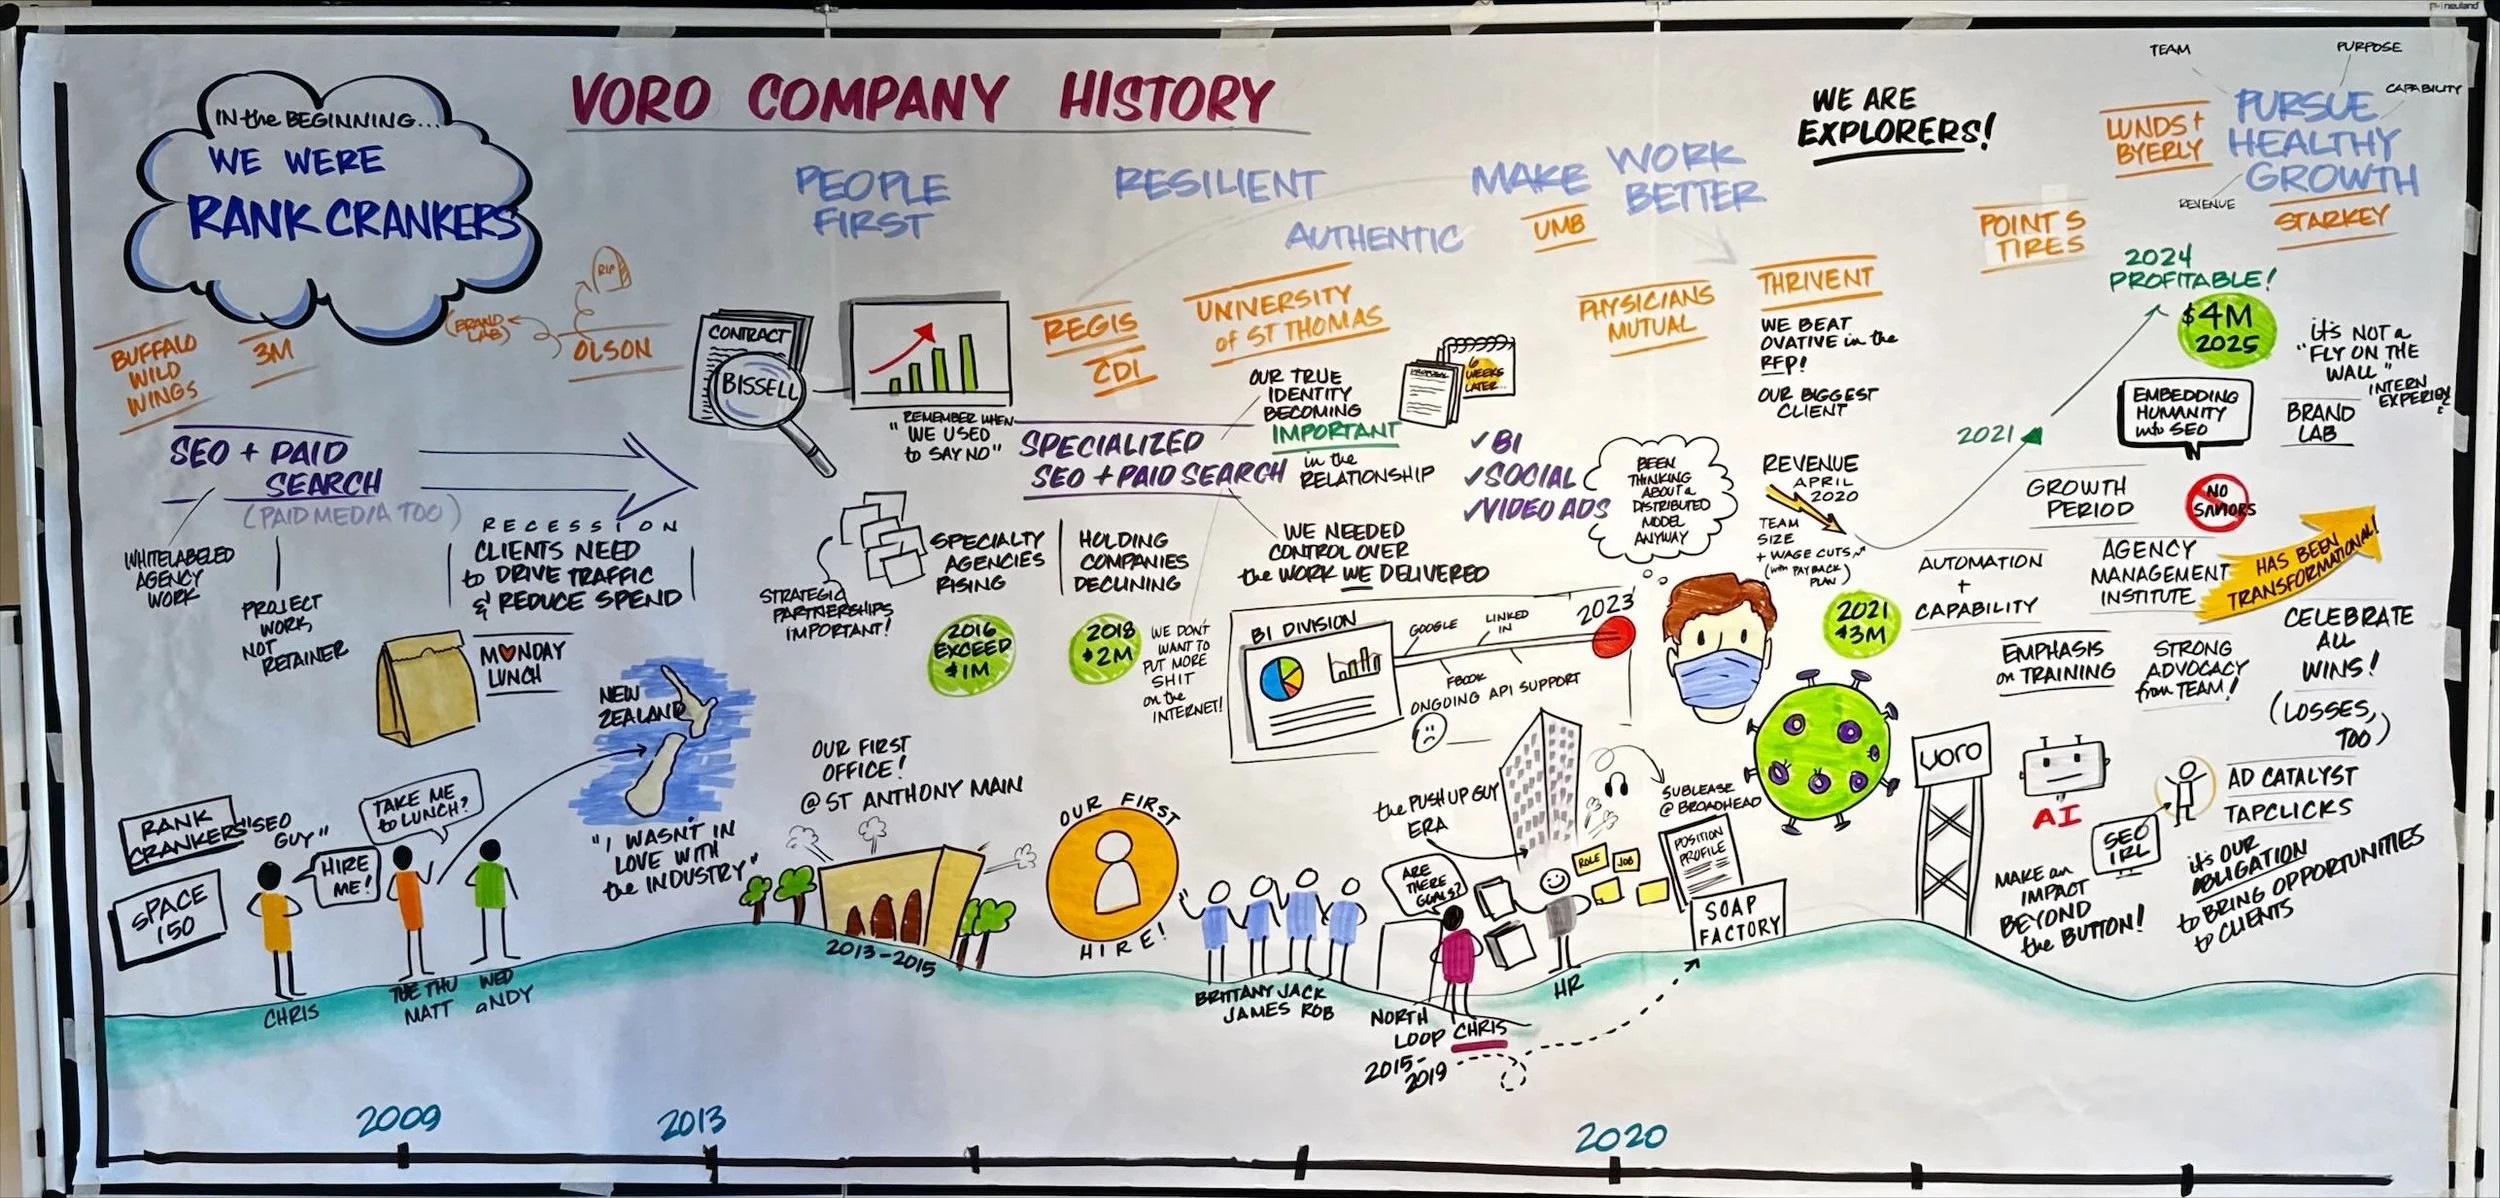 neuland
VORO COMPANY HISTORY
IN the BEGINNING...
WE WERE
RANK CRANKERS
PEOPLE
FIRST
RESILIENT
AUTHENTIC
MAKE WORK
BETTER
WE ARE
EXPLORERS!
TEAM
PURPOSE
CAPABILITY
PURSUE
HEALTHY
GROWTH
REVENUE
LUNDS +
BYERLY
STARKEY
POINT S
TIRES
UMB
BUFFALO
WILD
WINGS
3M
(BRAND
LAB)
RIP
OLSON
SEO + PAID
SEARCH
(PAID MEDIA TOO)
WHITELABELED
AGENCY
WORK
PROJECT
WORK,
NOT
RETAINER
RECESSION
CLIENTS NEED
to DRIVE TRAFFIC
& REDUCE SPEND
MONDAY
LUNCH
CONTRACT
BISSELL
"REMEMBER WHEN
WE USED
to SAY NO"
REGIS
CDI
UNIVERSITY
of ST THOMAS
OUR TRUE
IDENTITY
BECOMING
IMPORTANT
in the
RELATIONSHIP
PROPOSAL
6
WEEKS
LATER...
SPECIALIZED
SEO + PAID SEARCH
✓BI
✓SOCIAL
✓VIDEO ADS
STRATEGIC
PARTNERSHIPS
IMPORTANT!
SPECIALTY
AGENCIES
RISING
HOLDING
COMPANIES
DECLINING
2016
EXCEED
$1M
2018
$2M
WE DON'T
WANT TO
PUT MORE
SHIT
on the
INTERNET!
WE NEEDED
CONTROL OVER
the WORK WE DELIVERED
BI DIVISION
GOOGLE
LINKED
IN
FBOOK
2023
ONGOING API SUPPORT
PHYSICIANS
MUTUAL
THRIVENT
WE BEAT
OVATIVE in the
RFP!
OUR BIGGEST
CLIENT
BEEN
THINKING
ABOUT a
DISTRIBUTED
MODEL
ANYWAY
REVENUE
APRIL
2020
TEAM
SIZE
+ WAGE CUTS
(with PAYBACK
PLAN)
2021
$3M
2021
2024
PROFITABLE!
$4M
2025
it's NOT a
"FLY ON THE
WALL"
INTERN
EXPERIENCE
EMBEDDING
HUMANITY
into SEO
BRAND
LAB
GROWTH
PERIOD
NO
SAVIORS
AUTOMATION
+
CAPABILITY
AGENCY
MANAGEMENT
INSTITUTE
HAS BEEN
TRANSFORMATIONAL!
EMPHASIS
on TRAINING
STRONG
ADVOCACY
from TEAM!
CELEBRATE
ALL
WINS!
(LOSSES,
TOO)
RANK
CRANKERS
SPACE
150
"SEO
GUY"
HIRE
ME!
TAKE ME
to LUNCH?
CHRIS
TUE THU
MATT
WED
ANDY
NEW
ZEALAND
"I WASN'T IN
LOVE WITH
the INDUSTRY"
OUR FIRST
OFFICE!
@ ST ANTHONY MAIN
2013-2015
OUR FIRST
HIRE!
BRITTANY JACK
JAMES ROB
the PUSH UP GUY
ERA
ARE
THERE
GOALS?
NORTH
LOOP
2015-
2019
CHRIS
HR
ROLE
JOB
SUBLEASE
@ BROADHEAD
POSITION
PROFILE
SOAP
FACTORY
VORO
AI
SEO
IRL
MAKE an
IMPACT
BEYOND
the BUTTON!
AD CATALYST
TAPCLICKS
it's OUR
OBLIGATION
to BRING OPPORTUNITIES
to CLIENTS
2009
2013
2020